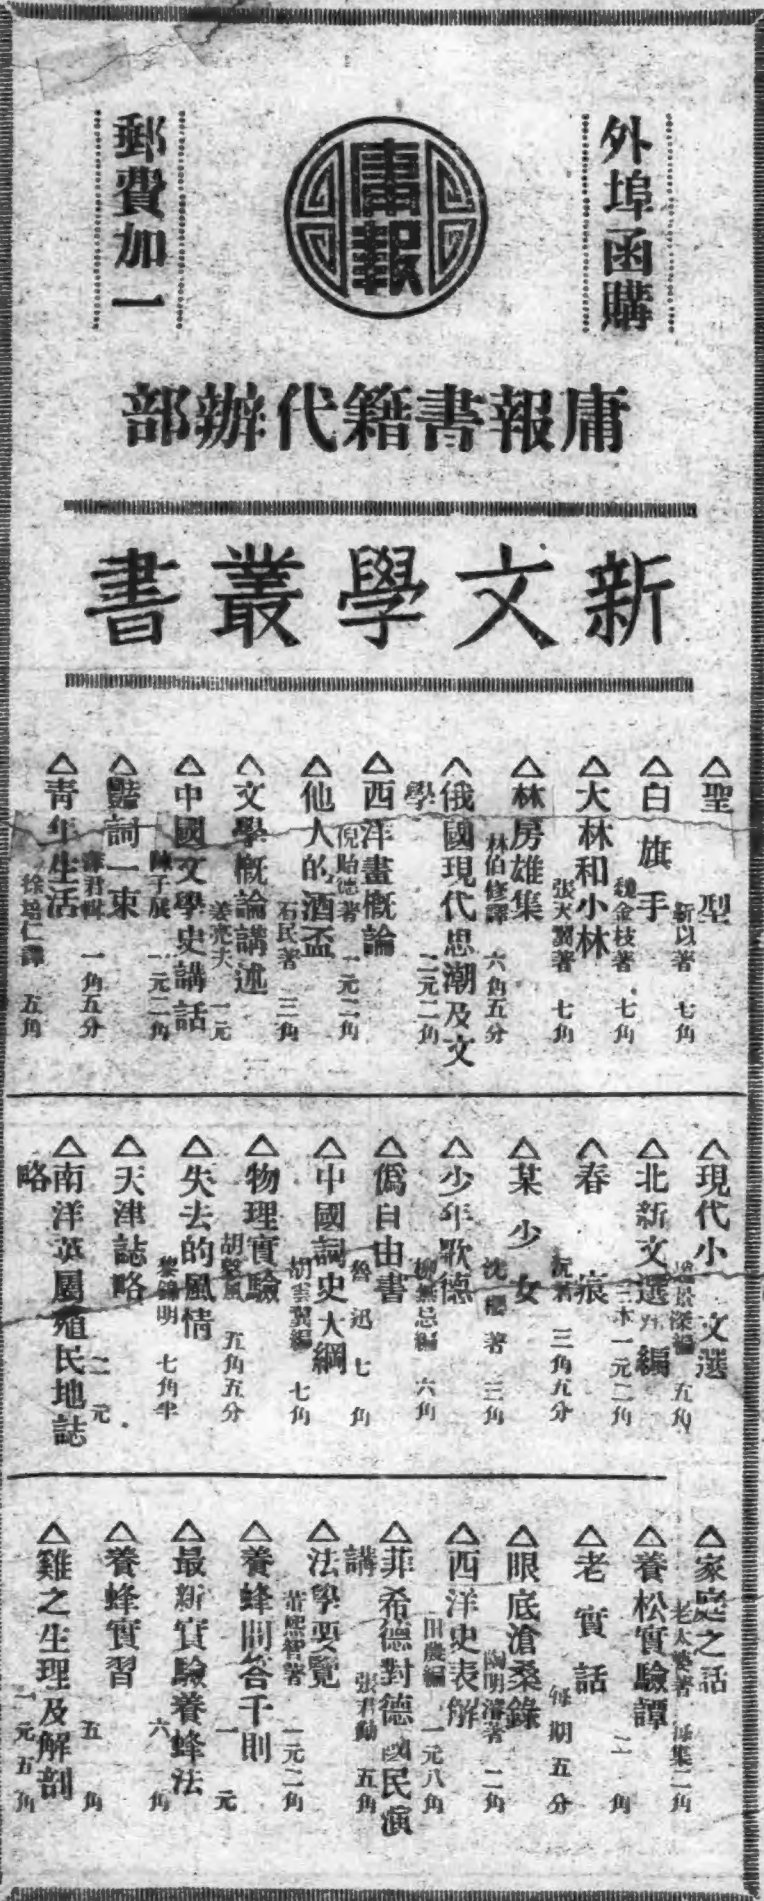 外埠函購
庸報
郵費加一
庸報書籍代辦部
新文學叢書
△聖型
靳以著 七角
△白旗手
魏金枝著 七角
△大林和小林
張天翼著 七角
△林房雄集
林伯修譯 六角五分
△俄國現代思潮及文
學 二元二角
△西洋畫概論
倪貽德著 一元二角
△他人的酒盃
石民著 三角
△文學概論講述
姜亮夫 一元
△中國文學史講話
陳子展 一元二角
△豔詞一束
君輯 一角五分
△青年生活
徐培仁譯 五角
△現代小 文選
景深編 五角
△北新文選 編
三本一元二角
△春痕
沅君 三角五分
△某少女
沈櫻著 三角
△少年歌德
柳無忌編 六角
△僞自由書
魯迅 七角
△中國詞史大綱
胡雲翼編 七角
△物理實驗
胡 風 五角五分
△失去的風情
黎錦明 七角半
△天津誌略
二元
△南洋英屬殖民地誌
略
△家庭之話
老太婆著 每集二角
△養松實驗譚
二角
△老實話
每期五分
△眼底滄桑錄
陶明濬著 二角
△西洋史表解
田農編 一元八角
△菲希德對德國民演
講 張君勱 五角
△法學要覽
熙智著 一元二角
△養蜂問答千則
一元
△最新實驗養蜂法
六角
△養蜂實習
五角
△雞之生理及解剖
一元五角